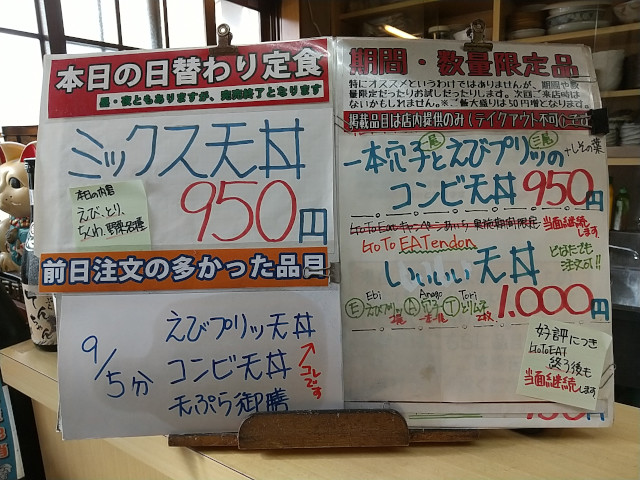 本日の日替わり定食
昼・夜ともありますが、完売終了となります
ミックス天丼
950円
本日の内容
えび、とり、
ちくわ、野菜各種
前日注文の多かった品目
9/5分
えびプリッ天丼
コンビ天丼
天ぷら御膳
コレです
期間・数量限定品
特にオススメというわけではありませんが、期間や数
量限定だったりお試しだったりします。次回ご来店時は
ないかもしれません。※ご飯大盛りは50円増となります。
掲載品目は店内提供のみ(テイクアウト不可)です
一本穴子とえびプリッの
二尾
三尾
+しその葉
コンビ天丼 950円
GoToEatキャンペーンあいち 実施期間限定
当面継続します
GoTo EATendon
いいいい天丼
どなたでも
注文可!!
Ebi Anago Tori
Ⓔえびプリッ Ⓐ穴子 Ⓣとりん子
一本 2枚
1.000円
好評につき
GoToEAT
終了後も
当面継続します